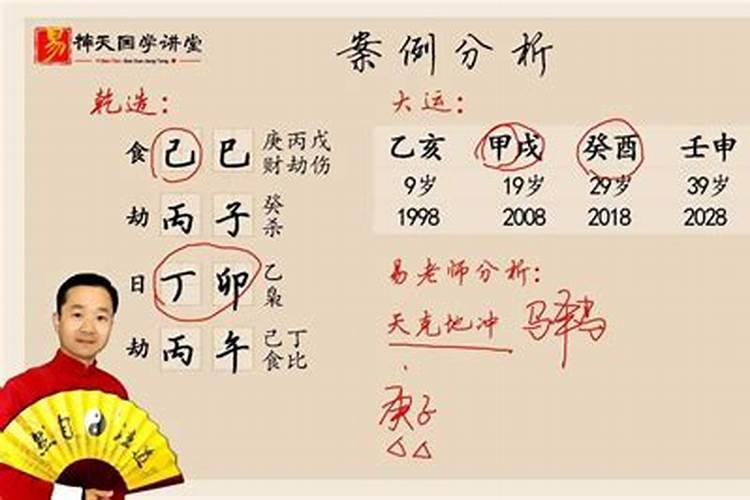 易 神天国学讲堂
案例分析
乾造：
食 己 巳 庚丙戊
财劫伤
劫 丙 子 癸
杀
日 丁 卯 乙
枭
劫 丙 午 己丁
食比
大运：
乙亥 甲戌 癸酉 壬申
9岁 19岁 29岁 39岁
1998 2008 2018 2028
易老师分析：
天克地冲
庚子
道法自然